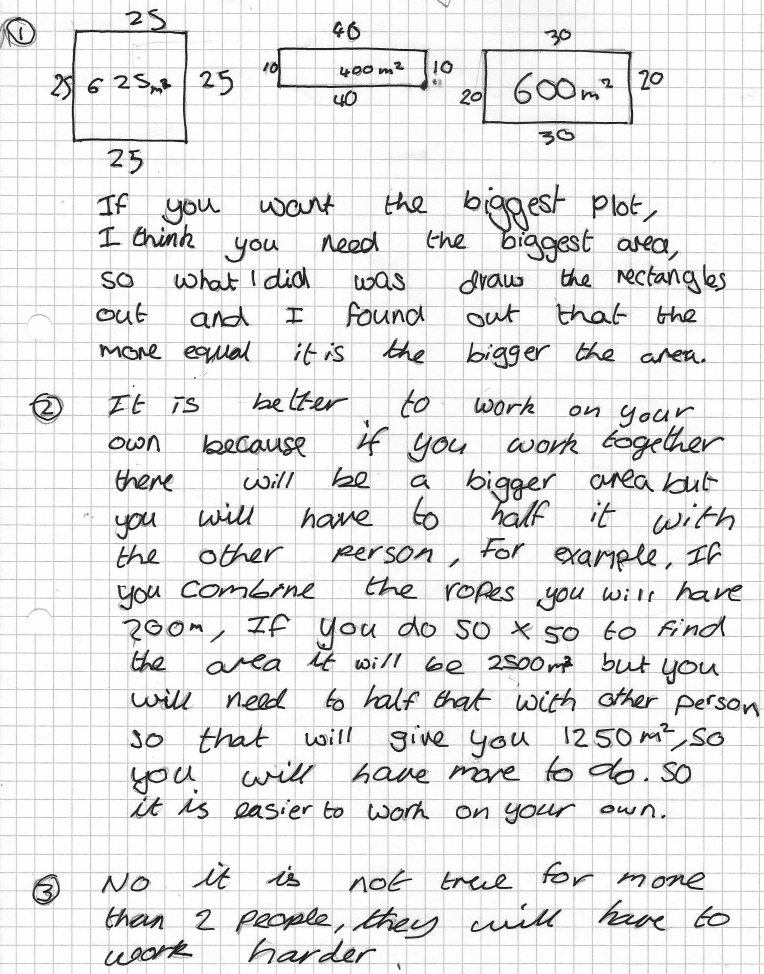 ① 25 40 30
25 625m² 25 10 400m² 10 20 600m² 20
25 40 30
If you want the biggest plot,
I think you need the biggest area,
so what I did was draw the rectangles
out and I found out that the
more equal it is the bigger the area.
② It is better to work on your
own because if you work together
there will be a bigger area but
you will have to half it with
the other person, For example, If
you combine the ropes you will have
200m, If you do 50 x 50 to find
the area it will be 2500m² but you
will need to half that with other person
so that will give you 1250m², so
you will have more to do. so
it is easier to work on your own.
③ No it is not true for more
than 2 people, they will have to
work harder.